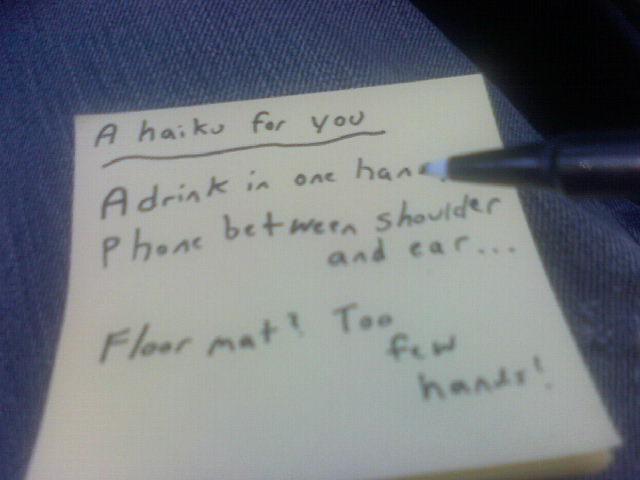 A haiku for you
A drink in one hand.
Phone between shoulder
and ear...
Floor mat! Too
few
hands!